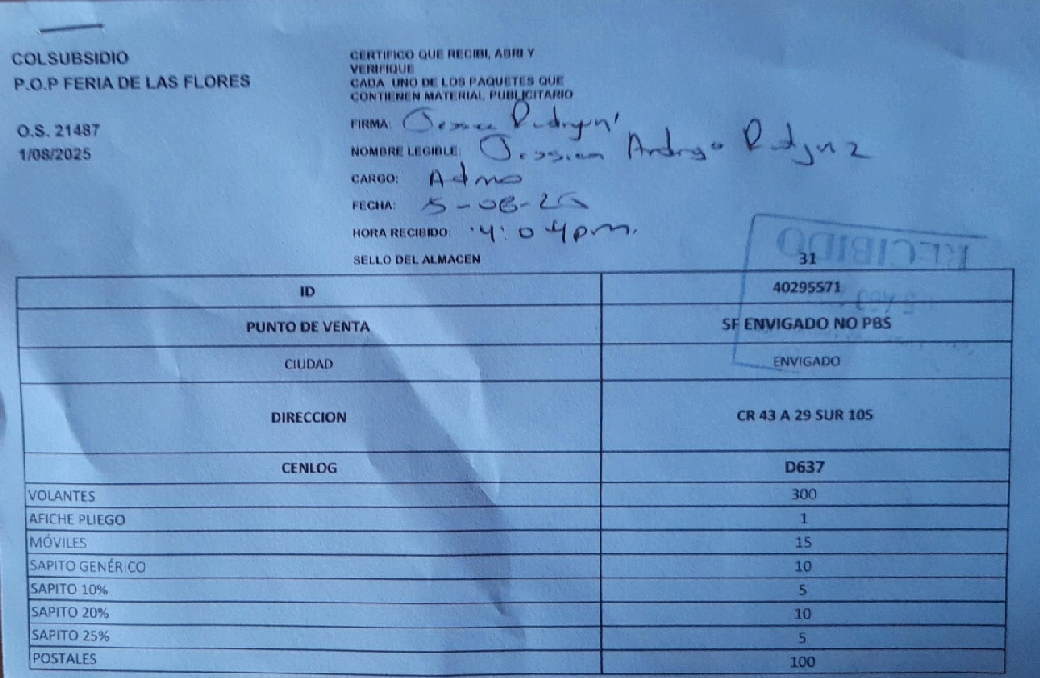 COLSUBSIDIO
P.O.P FERIA DE LAS FLORES
O.S. 21487
1/08/2025
CERTIFICO QUE RECIBI, ABRI Y
VERIFIQUE
CADA UNO DE LOS PAQUETES QUE
CONTIENEN MATERIAL PUBLICITARIO
FIRMA:
NOMBRE LEGIBLE: Jessica
CARGO: Admo
FECHA: 5-08-25
HORA RECIBIDO: 4:04pm.
SELLO DEL ALMACEN
31
RECIBIDO
ID 40295571
PUNTO DE VENTA SF ENVIGADO NO PBS
CIUDAD ENVIGADO
DIRECCION CR 43 A 29 SUR 105
CENLOG D637
VOLANTES 300
AFICHE PLIEGO 1
MÓVILES 15
SAPITO GENÉRICO 10
SAPITO 10% 5
SAPITO 20% 10
SAPITO 25% 5
POSTALES 100